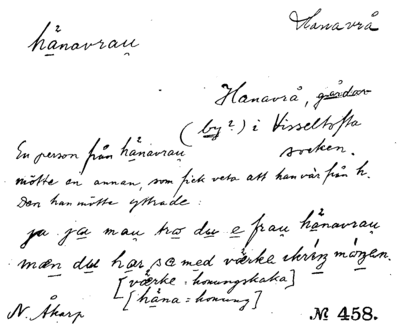 Hanavrå
hånavrau
Hanavrå, gårdar
(by?) i Visseltofta
socken.
En person från hånavrau
mötte en annan, som fick veta att han var från h.
Den han mötte yttrade:
ja ja mau tro du e frau hånavrau
mæn du har sə med värke
[värke: honungskaka]
[håna = honung]
N. Åkarp
№ 458.